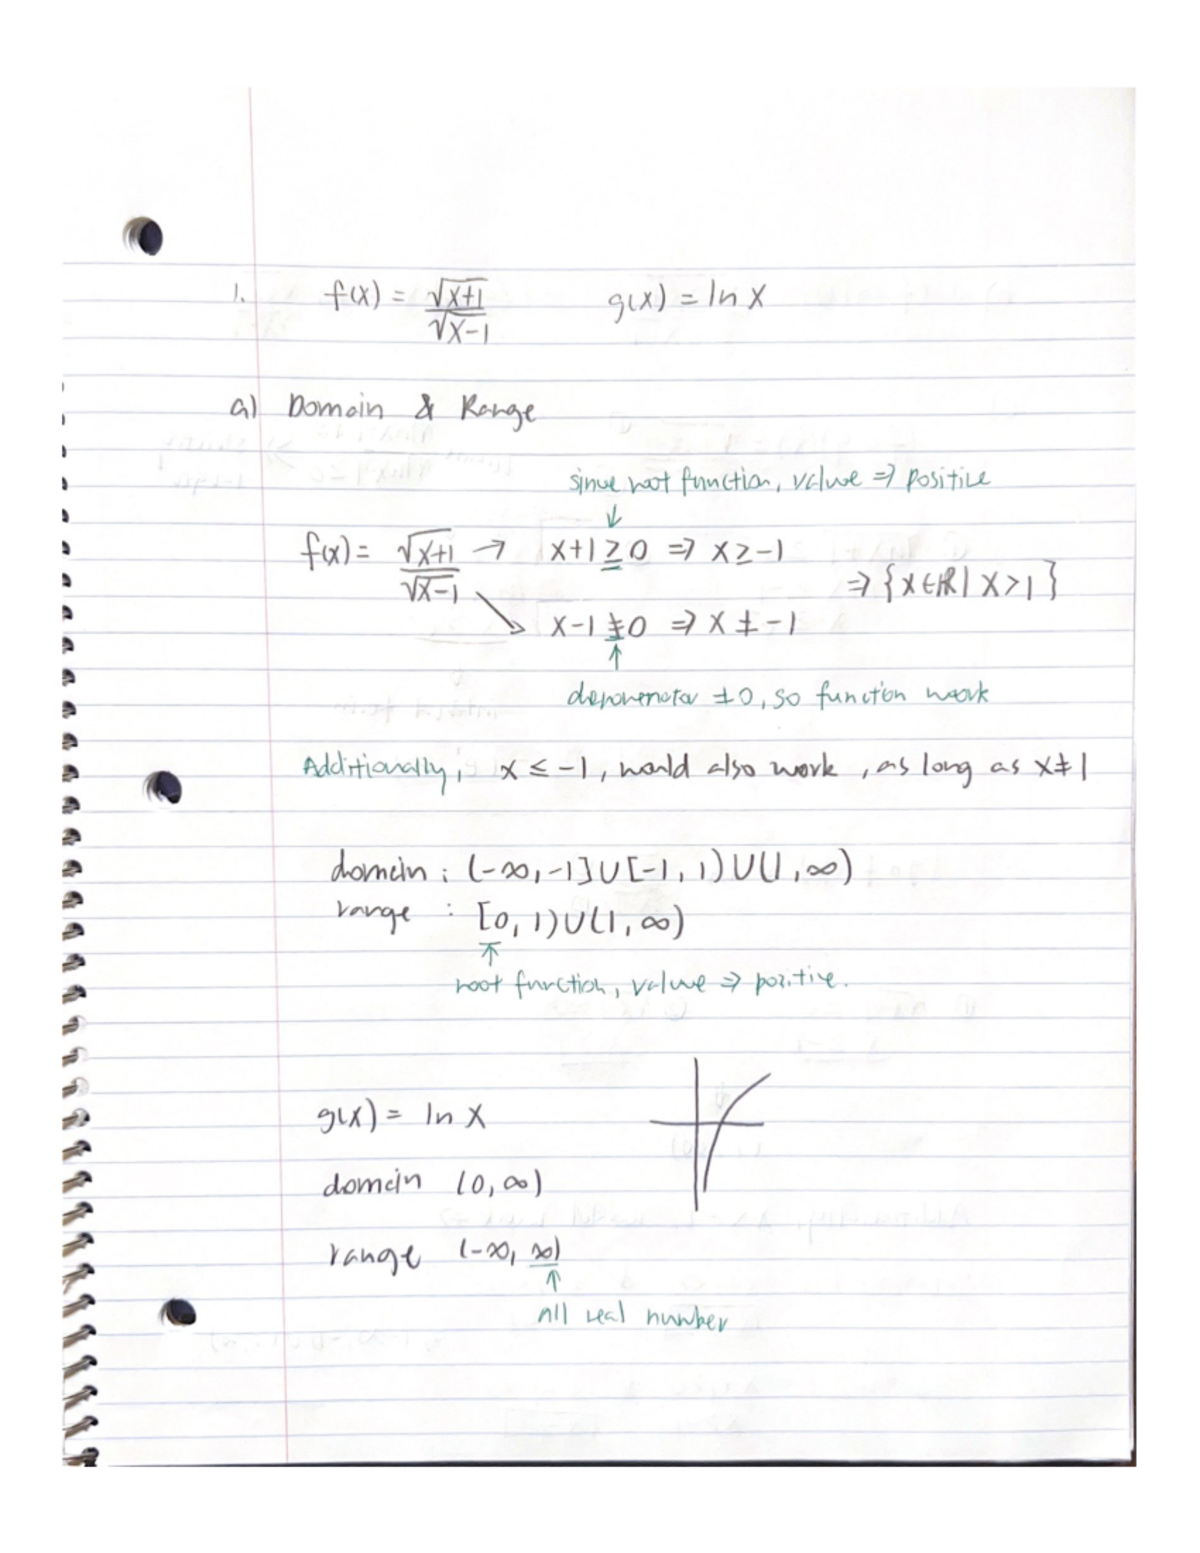 1. f(x) = √x+1 / √x-1 g(x) = ln x
a) Domain & Range
since root function, value => positive
↓
f(x) = √x+1 / √x-1 → x+1 ≥ 0 => x ≥ -1
=> {x∈ℝ | x>1}
x-1 ≠ 0 => x ≠ -1
↑
denomenator ≠0, so function work
Additionally, x ≤ -1, would also work, as long as x≠1
domain : (-∞,-1]∪[-1, 1)∪(1,∞)
range : [0, 1)∪(1,∞)
↑
root function, value => positive.
g(x) = ln x
domain (0,∞)
range (-∞, ∞)
↑
All real number